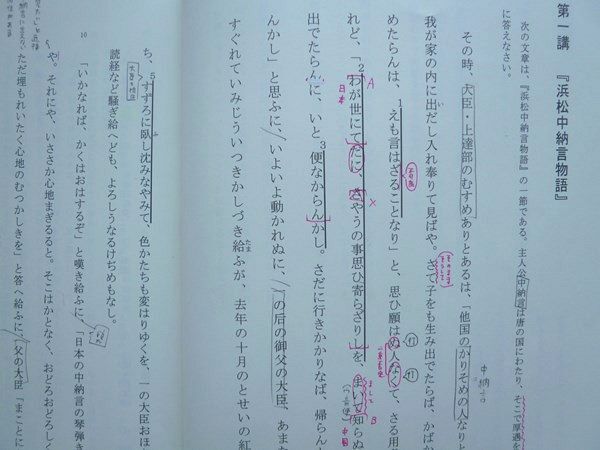 第一講　『浜松中納言物語』
次の文章は、『浜松中納言物語』の一節である。主人公中納言は唐の国にわたり、そこで厚遇を
に答えなさい。
その時、大臣・上達部のむすめありとあるは、「他国のかりそめの人なりと
中納言
我が家の内に出だし入れ奉りて見ばや。さて子をも生み出でたらば、かばか
めたらんは、えも言はざることなり」と、思ひ願はぬ人なくて、さる用意
れど、「わが世にてだに、さやうの事思ひ寄らざりしを、まいて知らぬ
日本
出でたらんに、いと便なからんかし。さだに行きかかりなば、帰らん
んかし」と思ふに、いよいよ動かれぬに、一の后の御父の大臣、あまた
すぐれていみじういつきかしづき給ふが、去年の十月のとせいの紅
ち、すずろに臥し沈みなやみて、色かたちも変はりゆくを、一の大臣おほ
読経など騒ぎ給へども、よろしうなるけぢめもなし。
「いかなれば、かくはおはするぞ」と嘆き給ふに、「日本の中納言の琴弾き
10
や。それにや、いささか心地まぎるると。そこはかとなく、おどろおどろしく
ただ埋もれいたく心地のむつかしきを」と答へ給ふに、父の大臣、「まことに